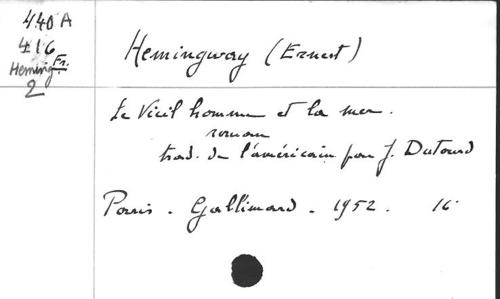 440 A
416
Heming. Fr.
2
Hemingway (Ernest)
Le Vieil homme et la mer.
roman
trad. de l'américain par J. Dutourd
Paris. Gallimard. 1952. 16